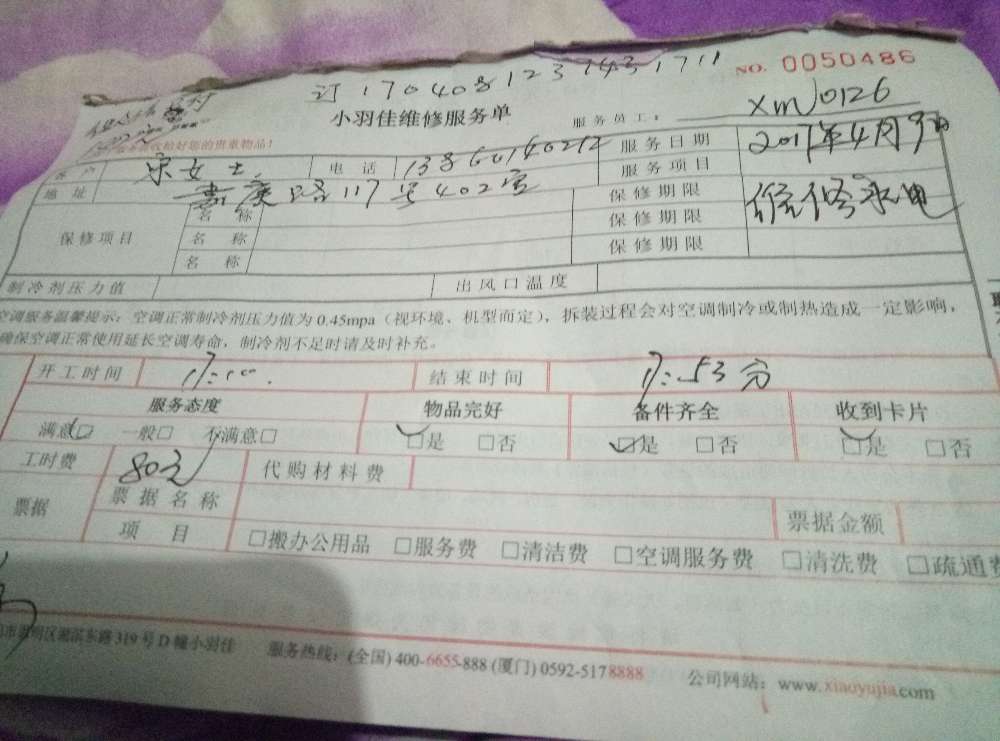 订 1704081237431711
NO. 0050486
小羽佳维修服务单
服务员工： xmJ0126
收拾好您的贵重物品！
客户 宋女士 电话 服务日期 2017年4月9日
地址 嘉庚路117号402室 服务项目 维修水电
保修项目 名称 保修期限
名称 保修期限
名称 保修期限
制冷剂压力值 出风口温度
空调服务温馨提示：空调正常制冷剂压力值为0.45mpa（视环境、机型而定），拆装过程会对空调制冷或制热造成一定影响，
确保空调正常使用延长空调寿命，制冷剂不足时请及时补充。
开工时间 结束时间 17:53分
服务态度 物品完好 备件齐全 收到卡片
满意□ 一般□ 不满意□ □是 □否 □是 □否 □是 □否
工时费 80元 代购材料费
票据 票据名称 票据金额
项目 □搬办公用品 □服务费 □清洁费 □空调服务费 □清洗费 □疏通费
市思明区湖滨东路319号D幢小羽佳 服务热线：(全国) 400-6655-888 (厦门) 0592-5178888 公司网站：www.xiaoyujia.com